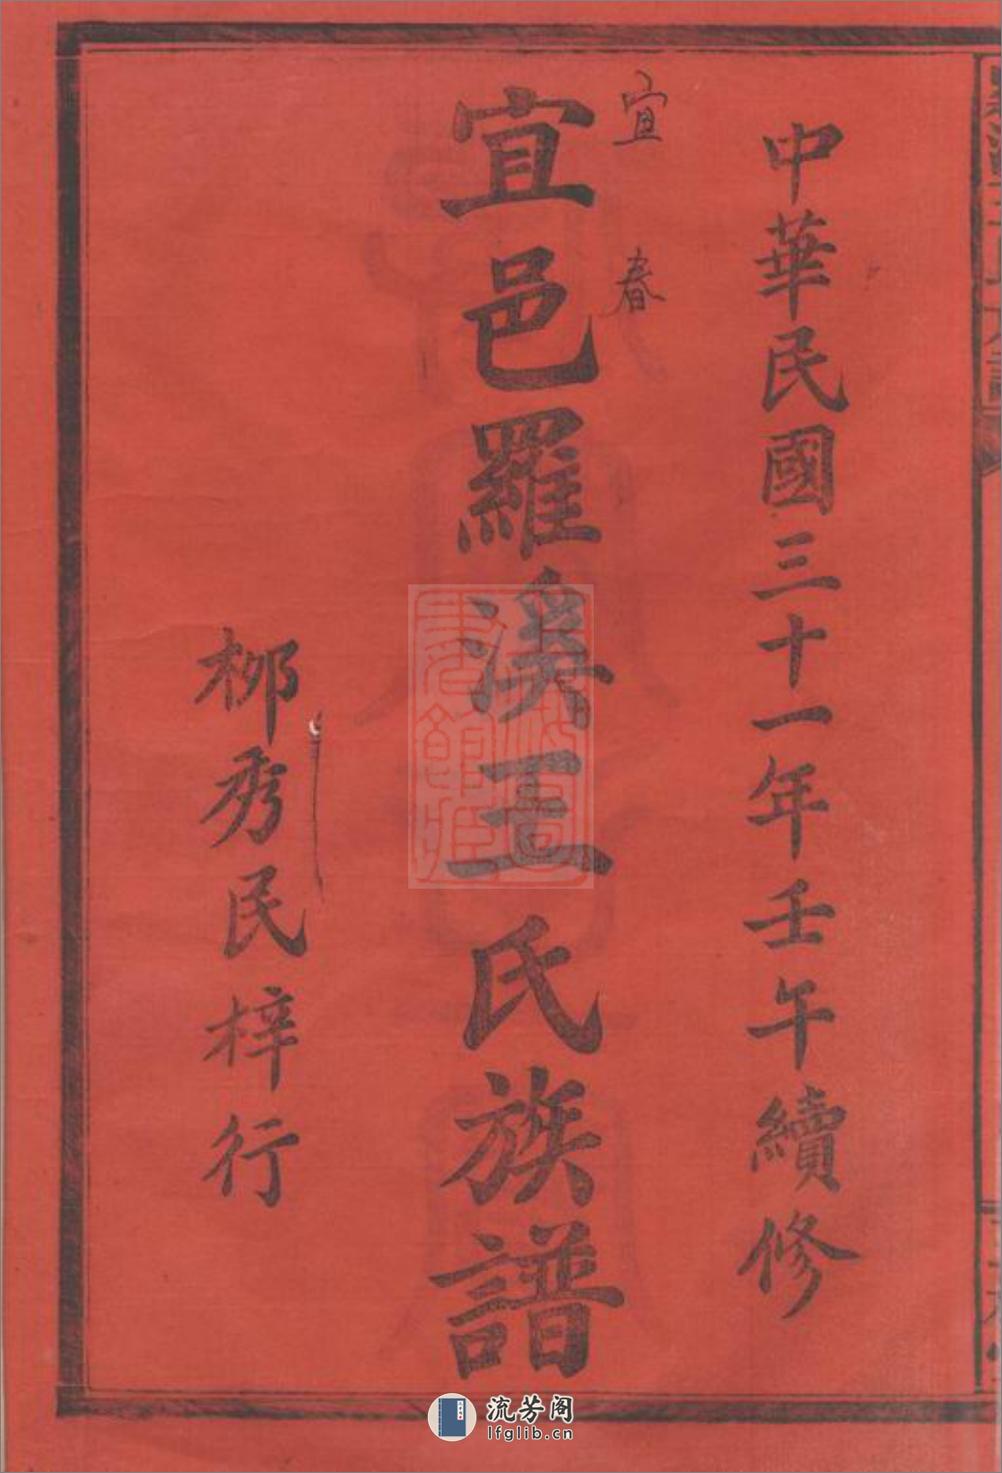 中華民國三十一年壬午續修
宜春
宜邑羅溪王氏族譜
柳秀民梓行
流芳阁
lfglib.cn